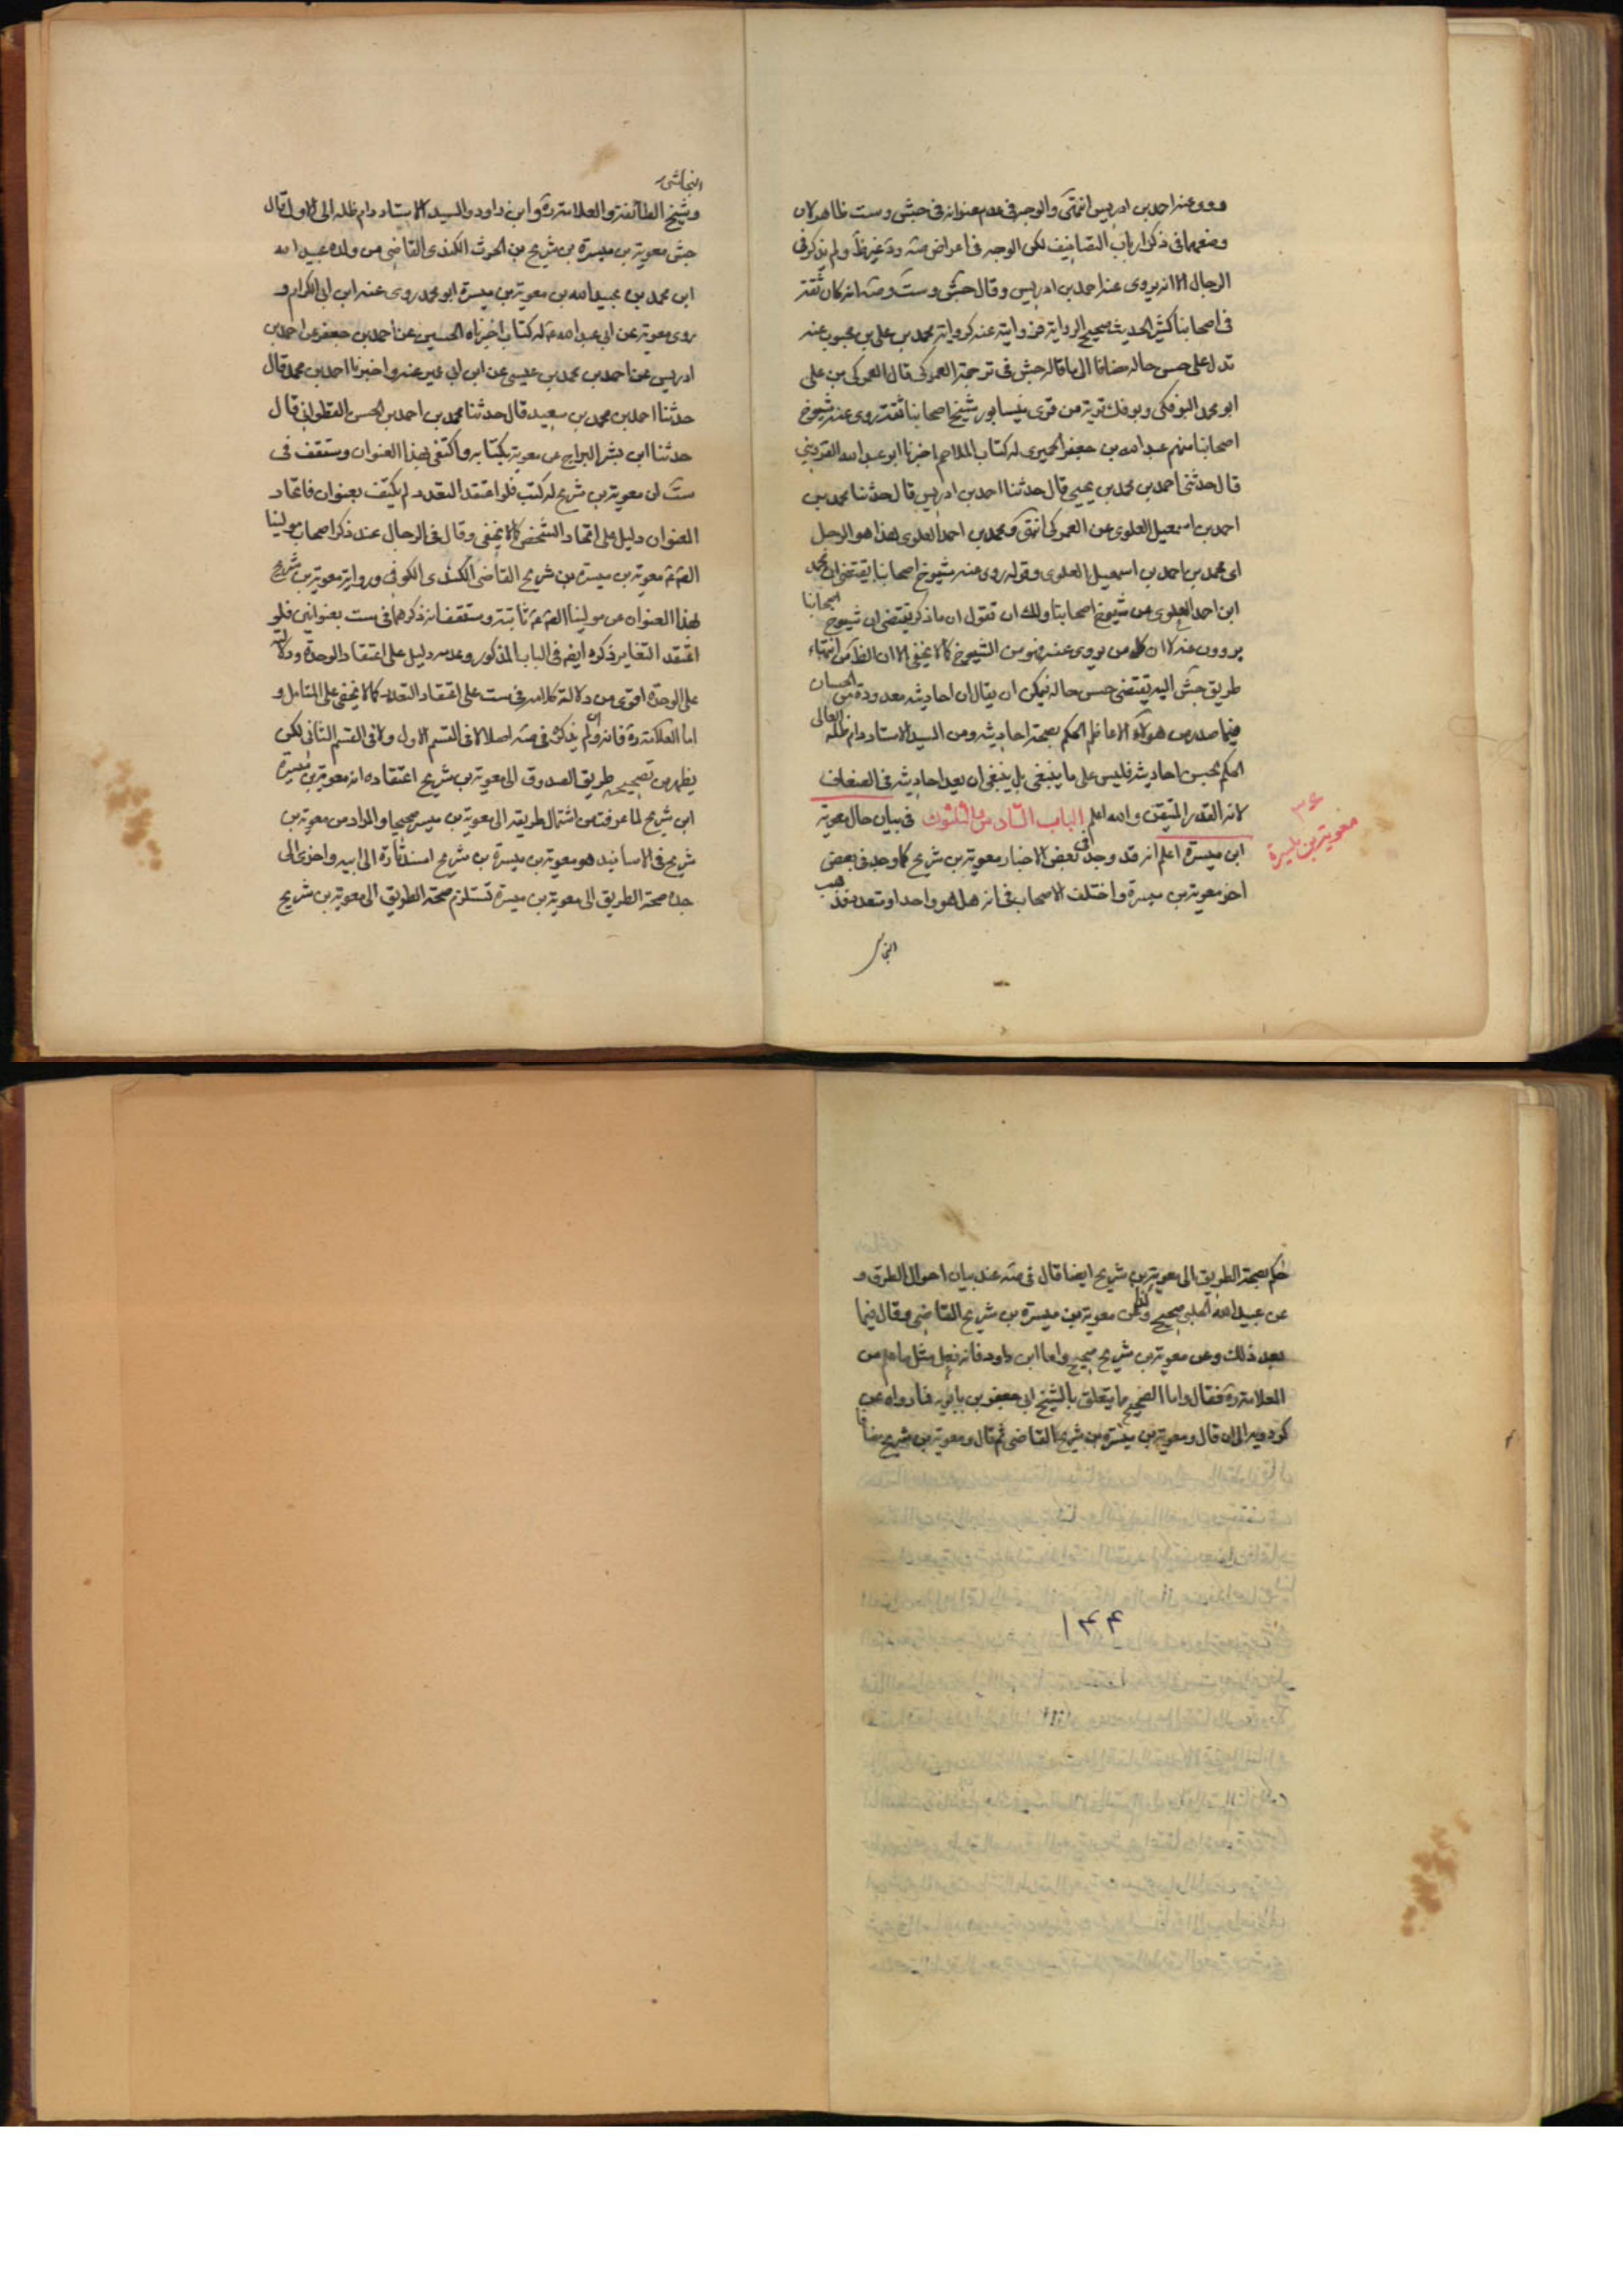 روى عنه احمد بن ادريس انتهى والوجه فى عدم عنوانه فى جش وست ظاهر لان
وضعهما فى ذكر ارباب التصانيف لكن الوجه فى اعراض صه ود غير ظ ولم يذكر فى
الرجال الا انه يروى عنه احمد بن ادريس وقال جش وست وصه انه كان ثقة
فى اصحابنا كثير الحديث صحيح الرواية فروايته عنه كرواية محمد بن على بن محبوب عنه
تدل على حسن حاله مضافا الى ما قاله جش فى ترجمة العمركى قال العمركى بن على
ابو محمد البوفكى وبوفك قرية من قرى نيسابور شيخ اصحابنا ثقة روى عنه شيوخ
اصحابنا منهم عبد الله بن جعفر الحميرى له كتاب الملاحم اخبرنا ابو عبد الله القزوينى
قال حدثنى احمد بن محمد بن يحيى قال حدثنا احمد بن ادريس قال حدثنا محمد بن
احمد بن اسمعيل العلوى عن العمركى انتهى ومحمد بن احمد العلوى هذا هو الرجل
اى محمد بن احمد بن اسمعيل العلوى وقوله روى عنه شيوخ اصحابنا يقتضى ان محمد
ابن احمد العلوى من شيوخ اصحابنا ولك ان تقول ان ما ذكر يقتضى ان شيوخ اصحابنا
يروون عنه لا ان كل من يروى عنه فهو من الشيوخ كما لا يخفى الا ان الظ من انتهاء
طريق جش اليه يقتضى حسن حاله فيمكن ان يقال ان احاديثه معدودة من الحسان
فيما صدر من هؤلاء الاعاظم الحكم بصحة احاديثه ومن السيد الاستاد دام ظله العالى
الحكم بحسن احاديثه فليس على ما ينبغى بل ينبغى ان يعد احاديثه فى الضعاف
لانه القدر المتيقن والله اعلم الباب السادس والثلثون فى بيان حال معوية
ابن ميسرة اعلم انه قد وجد فى بعض الاخبار معوية بن شريح كما وجد فى بعض
اخر معوية بن ميسرة واختلف الاصحاب فى انه هل هو واحد او متعدد فذهب
النجاش
٣٦
معوية بن ميسرة
النجاشى
وشيخ الطائفة والعلامة ره وابن داود والسيد الاستاد دام ظله الى الاول قال
جش معوية بن ميسرة بن شريح بن الحرث الكندى القاضى من ولده عبيد الله
ابن محمد بن عبيد الله بن معوية بن ميسرة ابو محمد روى عنه ابن ابى الكرام و
روى معوية عن ابى عبد الله ع له كتاب اخبرناه الحسين عن احمد بن جعفر عن احمد بن
ادريس عن احمد بن محمد بن عيسى عن ابن ابى عمير عنه واخبرنا احمد بن محمد قال
حدثنا احمد بن محمد بن سعيد قال حدثنا محمد بن احمد بن الحسن القطوانى قال
حدثنا ابن بشر السراج عن معوية بكتابه واكتفى بهذا العنوان وستقف فى
ست ان معوية بن شريح له كتب فلو اعتقد التعدد لم يكتف بعنوان فاتحاد
العنوان دليل على اتحاد الشخص كما لا يخفى وقال فى الرجال عند ذكر اصحاب مولينا
الص ع معوية بن ميسرة بن شريح القاضى الكندى الكوفى ورواية معوية بن شريح
بهذا العنوان عن مولينا الص ع ثابتة وستقف انه ذكرهما فى ست بعنوانين فلو
اعتقد التغاير ذكره ايضا فى الباب المذكور وعدمه دليل على اعتقاد الوحدة ودلالته
على الوحدة اقوى من دلالة كلامه فى ست على اعتقاد التعدد كما لا يخفى على المتامل و
اما العلامة ره فانه وان لم يذكره فى صه اصلا لا فى القسم الاول ولا فى القسم الثانى لكن
يظهر من تصحيحه طريق الصدوق الى معوية بن شريح اعتقاده انه معوية بن ميسرة
ابن شريح لما عرفت من اشتمال طريقه الى معوية بن ميسرة صحيحا والمراد من معوية بن
شريح فى الاسانيد هو معوية بن ميسرة بن شريح اسند تارة الى ابيه واخرى الى
جده صحة الطريق الى معوية بن ميسرة تستلزم صحة الطريق الى معوية بن شريح
حكم بصحة الطريق الى معوية بن شريح ايضا قال فى صه عند بيان احوال الطرق و
عن عبيد الله الحلبى صحيح وكذا عن معوية بن ميسرة بن شريح القاضى وقال فيما
بعد ذلك وعن معوية بن شريح صحيح واما ابن داود فانه فعل مثل ما علم من
العلامة ره فقال واما الصحيح ما يتعلق بالشيخ ابى جعفر بن بابويه فما رواه عن
كردويه الى ان قال ومعوية بن ميسرة بن شريح القاضى ثم قال ومعوية بن شريح مضافا